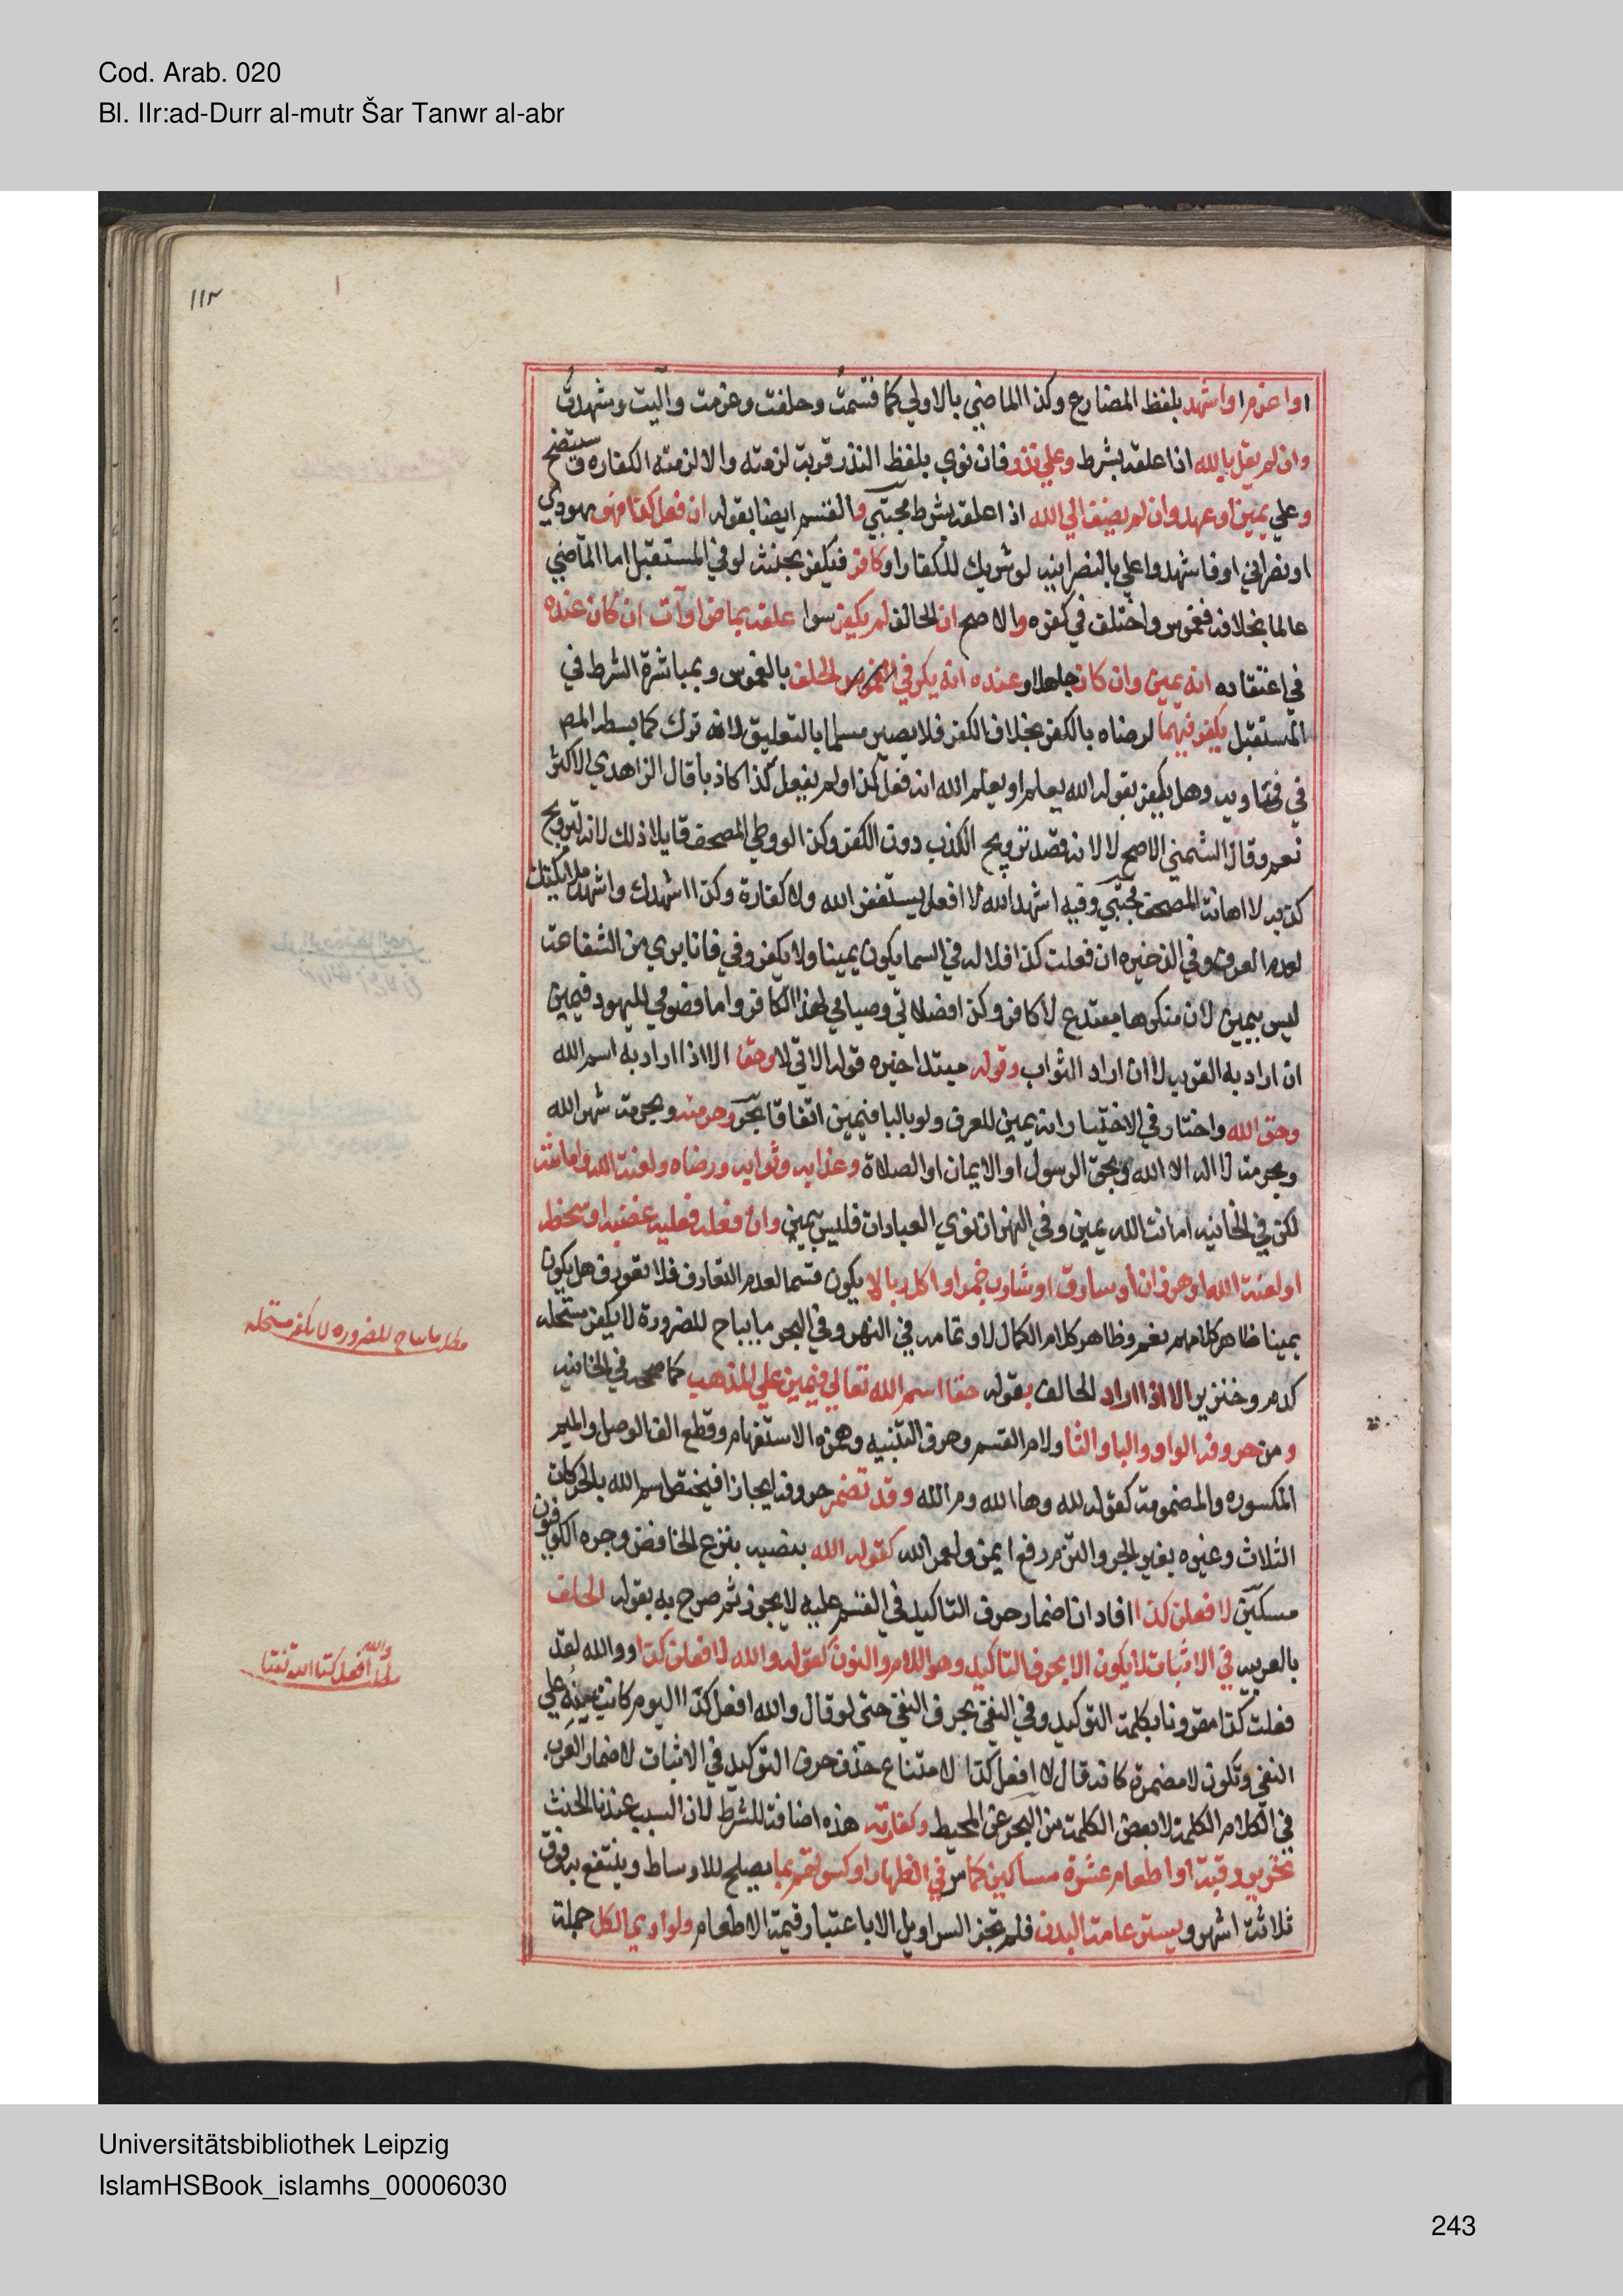 Cod. Arab. 020
Bl. IIr:ad-Durr al-mutr Šar Tanwr al-abr
١١٣
او اعزم او اشهد بلفظ المضارع وكذا الماضي بالاولي كاقسمت وحلفت وعزمت وآليت وشهدت
وان لم يقل بالله اذا علقه بشرط وعلي نذر فان نوي بلفظ النذر قربة لزمته والا لزمته الكفاره سيتضح
وعلي يمين او عهد وان لم يضف الي الله اذا علقه بشرط مجتبي والقسم ايضا بقوله ان فعل كذا فهو يهودي
او نصراني او فاشهدوا علي بالنصرانيه او شريك للكفار او كافر فيكفر بحنثه لو في المستقبل اما الماضي
عالما بخلافه فغموس واختلف في كفره والاصح ان الحالف لم يكفر سوا علقه بماض او آت ان كان عنده
في اعتقاده انه يمين وان كان جاهلا وعنده انه يكفر في الحلف بالغموس وبمباشرة الشرط في
المستقبل يكفر فيهما لرضاه بالكفر بخلاف الكفر فلا يصير مسلما بالتعليق لانه ترك كما بسطه المص
في فتاويه وهل يكفر بقوله الله يعلم او يعلم الله انه فعل كذا او لم يفعل كذا كاذبا قال الزاهدي الاكثر
نعم وقال الشمني الاصح لا لانه قصد ترويج الكذب دون الكفر وكذا لو وطي المصحف قايلا ذلك لانه لترويج
كذبه لا اهانة المصحف مجتبي وفيه اشهد الله لا افعل يستغفر الله ولا كفارة وكذا اشهدك واشهد ملائكتك
لعدم العرف وفي الذخيره ان فعلت كذا فلا اله في السما يكون يمينا ولا يكفر وفي فانا بري من الشفاعة
ليس بيمين لان منكرها مبتدع لا كافر وكذا فصلاتي وصيامي لهذا الكافر واما فصومي لليهود فيمين
ان اراد به القربه لا ان اراد الثواب وقوله مبتدا خبره قوله الاتي لا وحقا الا اذا اراد به اسم الله
وحق الله واختار في الاختيار انه يمين للعرف ولو بالبا فيمين اتفاقا بحر وحرمته وبحرمة شهد الله
وبحرمة لا اله الا الله وبحق الرسول او الايمان او الصلاة وعذابه وثوابه ورضاه ولعنة الله وامانته
لكن في الخانيه امانة الله يمين وفي النهر ان نوي العبادات فليس بيمين وان فعله فعليه غضبه او سخطه
او لعنة الله او هو زان او سارق او شارب خمر او اكل ربا لا يكون قسما لعدم التعارف فلو تعورف هل يكون
يمينا ظاهر كلامهم نعم وظاهر كلام الكمال لا وتمامه في النهر وفي البحر ما يباح للضرورة لا يكفر مستحله
كدم وخنزير الا اذا اراد الحالف بقوله حقا اسم الله تعالي فيمين علي المذهب كما صححه في الخانيه
ومن حروفه الواو والبا والتا ولام القسم وحرف التنبيه وهمزه الاستفهام وقطع الف الوصل والميم
المكسوره والمضمومة كقوله لله وها الله وم الله وقد تضمر حروفه ايجازا فيختص اسم الله بالحركات
الثلاث وغيره بغير الجر والتزم رفع ايمن ولعمر الله كقوله الله بنصبه بنزع الخافض وجره الكوفيون
مسكين لافعلن كذا افاد ان اضمار حرف التاكيد في القسم عليه لا يجوز ثم صرح به بقوله الحلف
بالعربيه في الاثبات لا يكون الا بحرف التاكيد وهو اللام والنون كقوله والله لافعلن كذا ووالله لقد
فعلت كذا مقرونا بكلمة التوكيد وفي النفي بحرف النفي حتي لو قال والله افعل كذا اليوم كانت يمينه علي
النفي وتكون لا مضمرة كانه قال لا افعل كذا لامتناع حذف حرف التوكيد في الاثبات لاضمار العرب
في الكلام الكلمة لا بعض الكلمة من البحر عن المحيط وكفارته هذه اضافة للشرط لان السبب عندنا الحنث
تحرير رقبة او اطعام عشرة مساكين كما مر في الظهار او كسوتهم بما يصلح للاوساط وينتفع به فوق
ثلاثة اشهر ويستر عامة البدن فلم تجز السراويل الا باعتبار قيمة الاطعام ولو ادي الكل جملة
مطلب ما يباح للضروره لا يكفر مستحله
والله
افعل كذا
Universitätsbibliothek Leipzig
IslamHSBook_islamhs_00006030
243